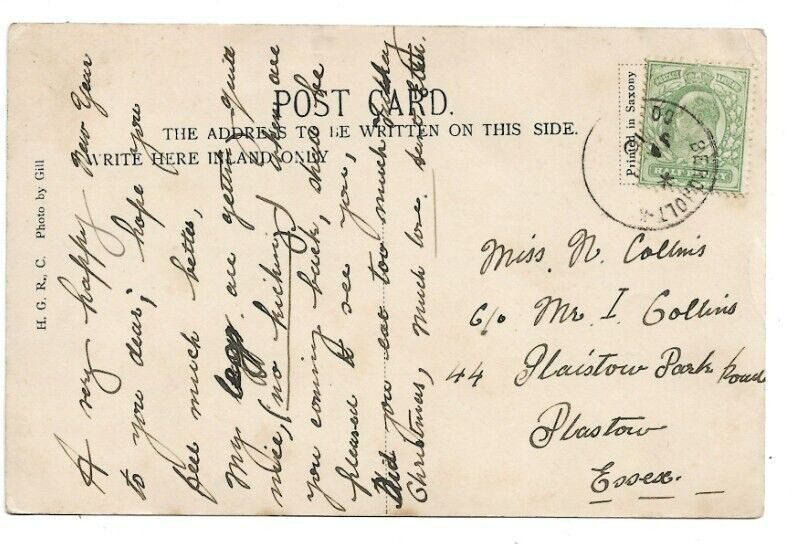 POST CARD.
THE ADDRESS TO BE WRITTEN ON THIS SIDE.
WRITE HERE INLAND ONLY
H. G. R., C. Photo by Gill
Printed in Saxony
POSTAGE & REVENUE
HALF PENNY
BERGHOLT
A very happy New Year
to you dear; hope you
feel much better,
My legs are getting quite
nice, (no kicking) when are
you coming back, shall be
pleased to see you,
Did you eat too much turkey
Christmas, much love
Miss N. Collins
c/o Mr I Collins
44 Plaistow Park Road
Plastow
Essex.